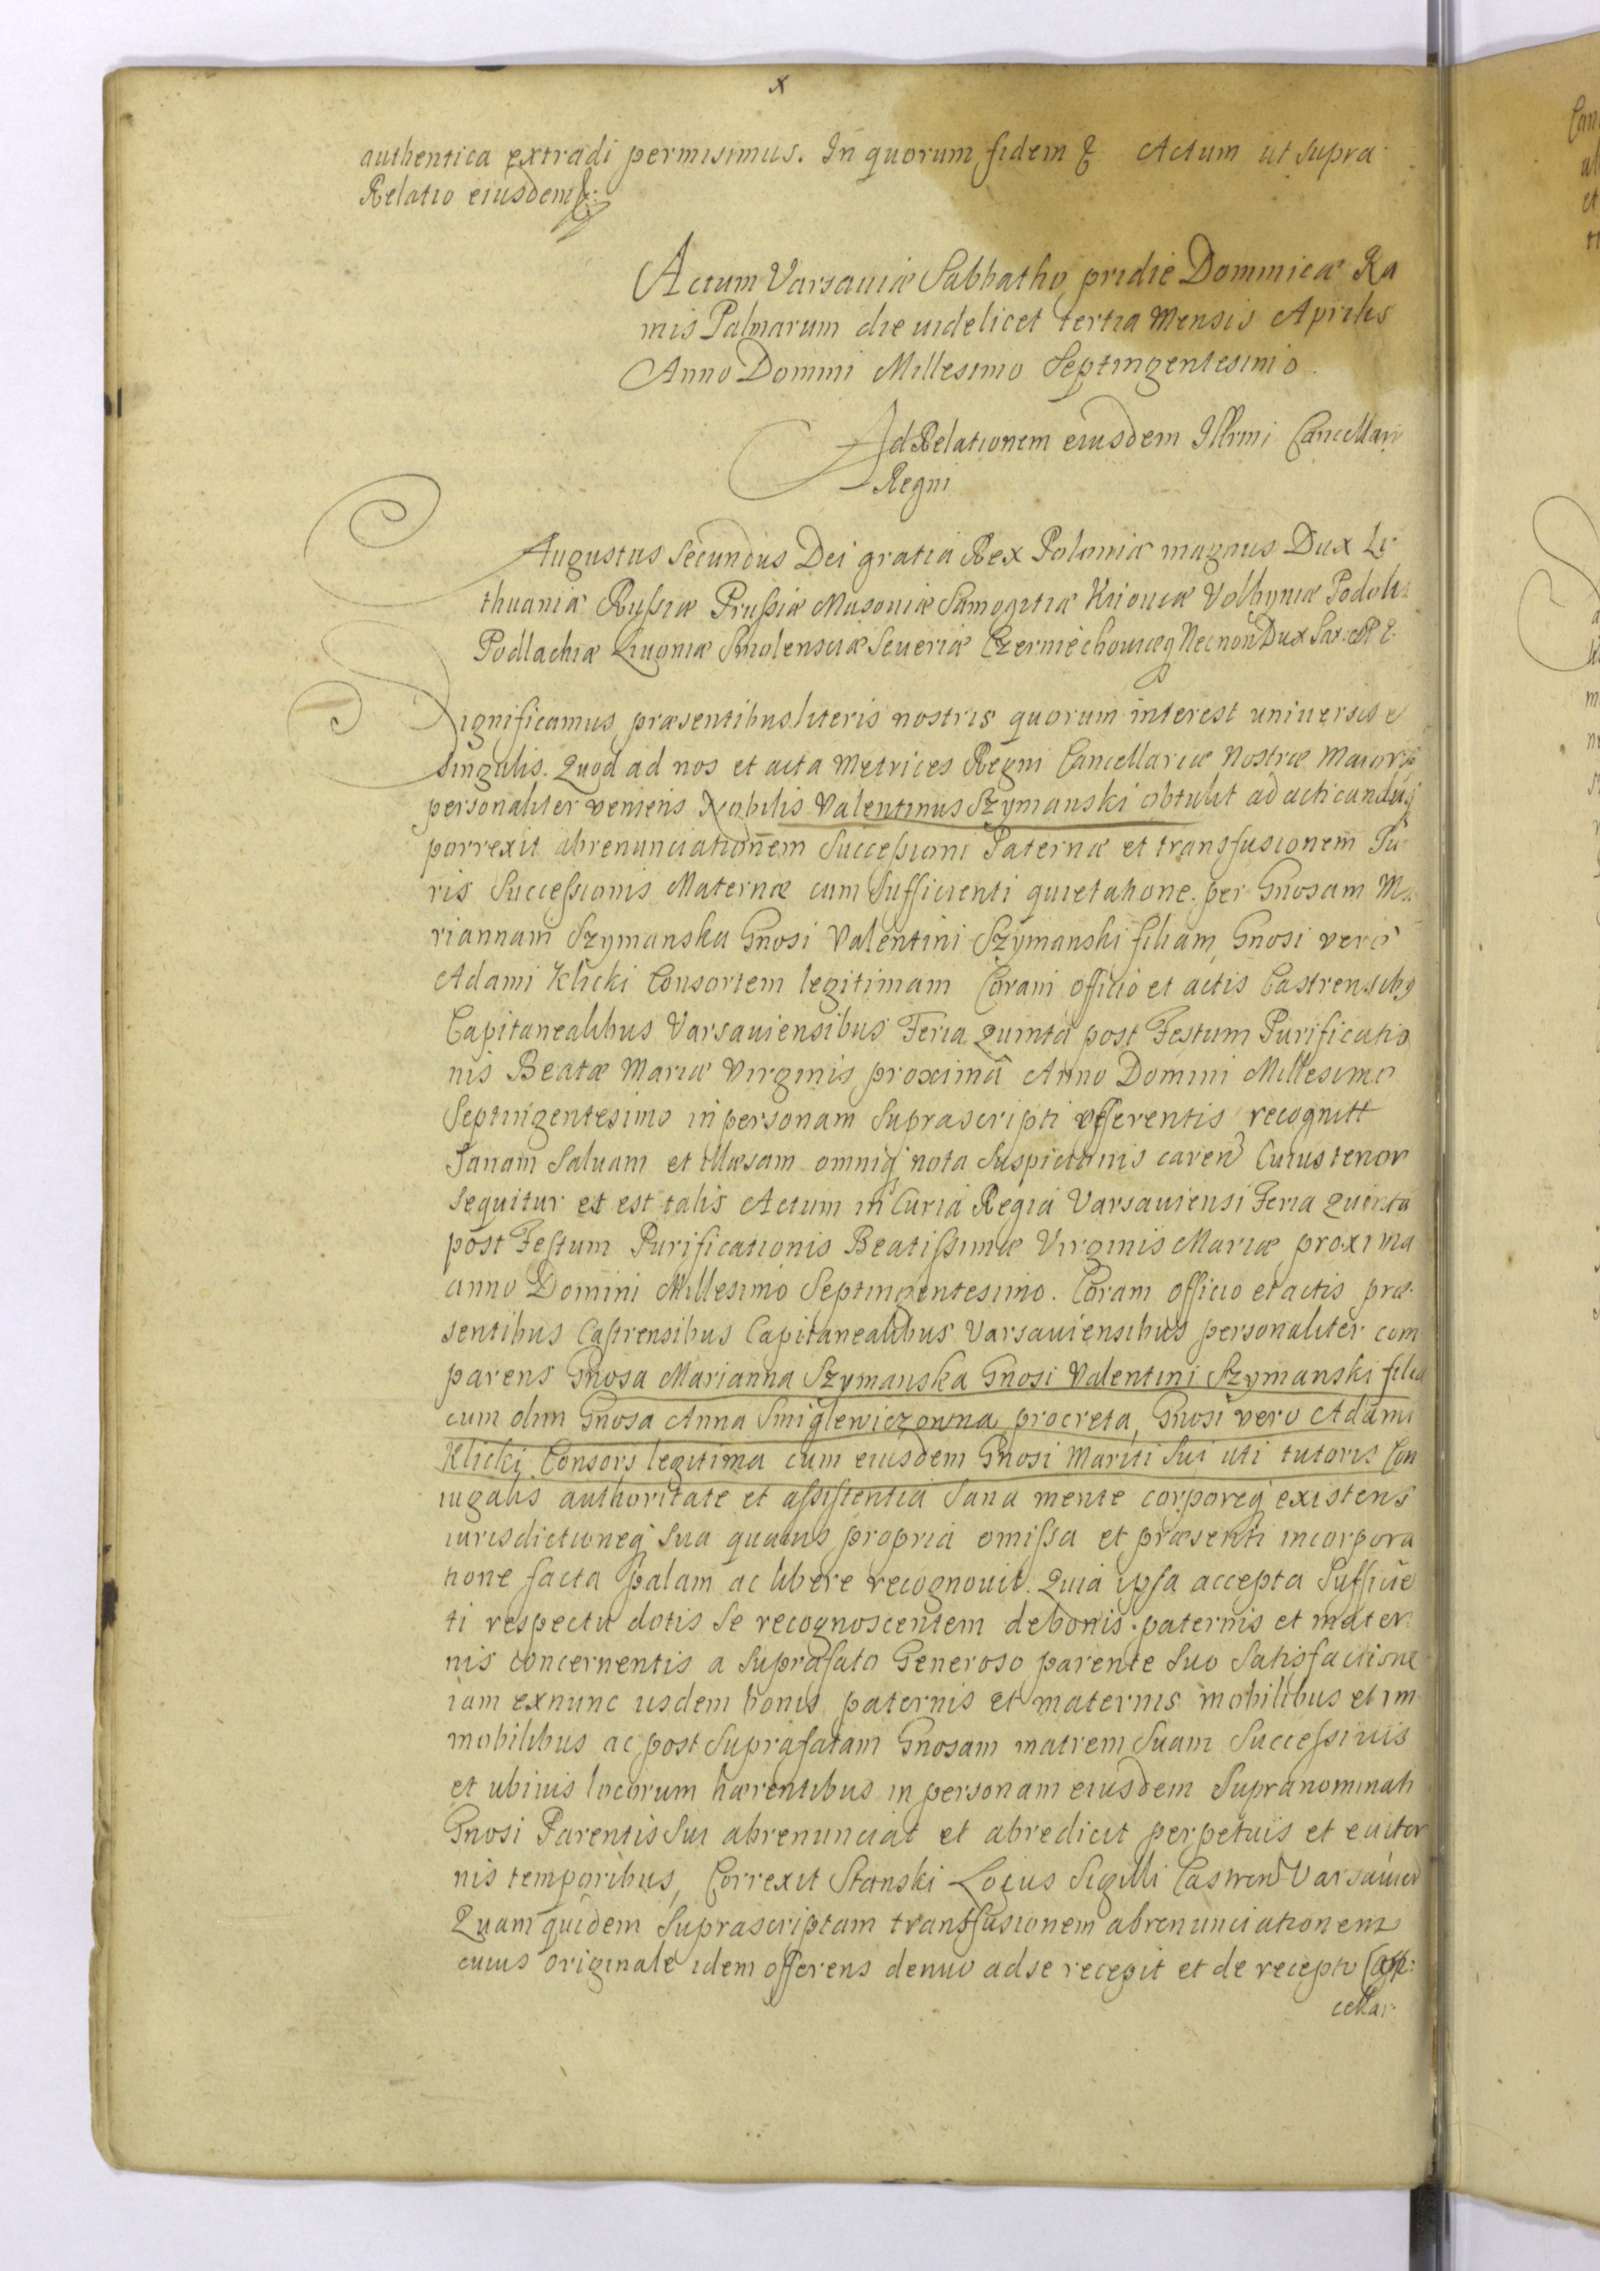 x
authentica extradi permisimus. In quorum fidem & Actum ut supra
Relatio eiusdem &:
Actum Varsaviæ Sabbatho pridie Dominicæ Ra
mis Palmarum die videlicet tertia Mensis Aprilis
Anno Domini Millesimo Septingentesimo.
Ad Relationem eiusdem Illrmi Cancellarii
Regni
Augustus Secundus Dei gratia Rex Poloniæ magnus Dux Li
thuaniæ Russiæ Prussiæ Masoviæ Samogitiæ Kiioviæ Volhyniæ Podoliæ
Podlachiæ Livoniæ Smolensciæ Severiæ Czerniechoviæq Necnon Dux Sax: et P E.
Significamus præsentibus literis nostris quorum interest universis e
singulis. Quod ad nos et acta Metrices Regni Cancellariæ Nostræ Maioris
personaliter veniens Nobilis Valentinus Szymanski obtulit ad acticanduq
porrexit abrenunciationem Successioni Paternæ et transfusionem Iu
ris Successionis Maternæ cum Sufficienti quietatione per Gnosam Ma
riannam Szymanska Gnosi Valentini Szymanski filiam, Gnosi vero
Adami Klicki Consortem legitimam Coram officio et actis Castrensibq
Capitanealibus Varsaviensibus Feria Quinta post Festum Purificatio
nis Beatæ Mariæ Virginis proxima Anno Domini Millesimo
Septingentesimo in personam suprascripti offerentis recognitt
Sanam Salvam et illæsam omniq nota Suspicionis caren Cuius tenor
sequitur et est talis Actum in Curia Regia Varsaviensi Feria Quinta
post Festum Purificationis Beatissimæ Virginis Mariæ proxima
anno Domini Millesimo Septingentesimo. Coram officio et actis præ-
sentibus Castrensibus Capitanealibus Varsaviensibus personaliter com
parens Gnosa Marianna Szymanska Gnosi Valentini Szymanski filia
cum olim Gnosa Anna Smiglewiczowna procreta, Gnosi vero Adami
Klicki Consors legitima cum eiusdem Gnosi Mariti Sui uti tutoris Con
iugalis authoritate et assistentia Sana mente corporeq existens
iurisdictioneq Sua quavis propria omissa et præsenti incorpora
tione facta palam ac libere recognovit. Quia ipsa accepta Sufficie
ti respectu dotis Se recognoscentem de bonis paternis et mater
nis concernentis a Suprafato Generoso parente Suo Satisfactione
iam exnunc iisdem bonis paternis et maternis mobilibus et im
mobilibus ac post Suprafatam Gnosam matrem Suam Successivis
et ubivis locorum hærentibus in personam eiusdem Supranominati
Gnosi Parentis Sui abrenunciat et abredicit perpetuis et eviter
nis temporibus, Correxit Stanski Locus Sigilli Castren Varsavien
Quam quidem Suprascriptam transfusionem abrenunciationem
cuius originale idem offerens denuo ad se recepit et de recepto Can:
cellar: